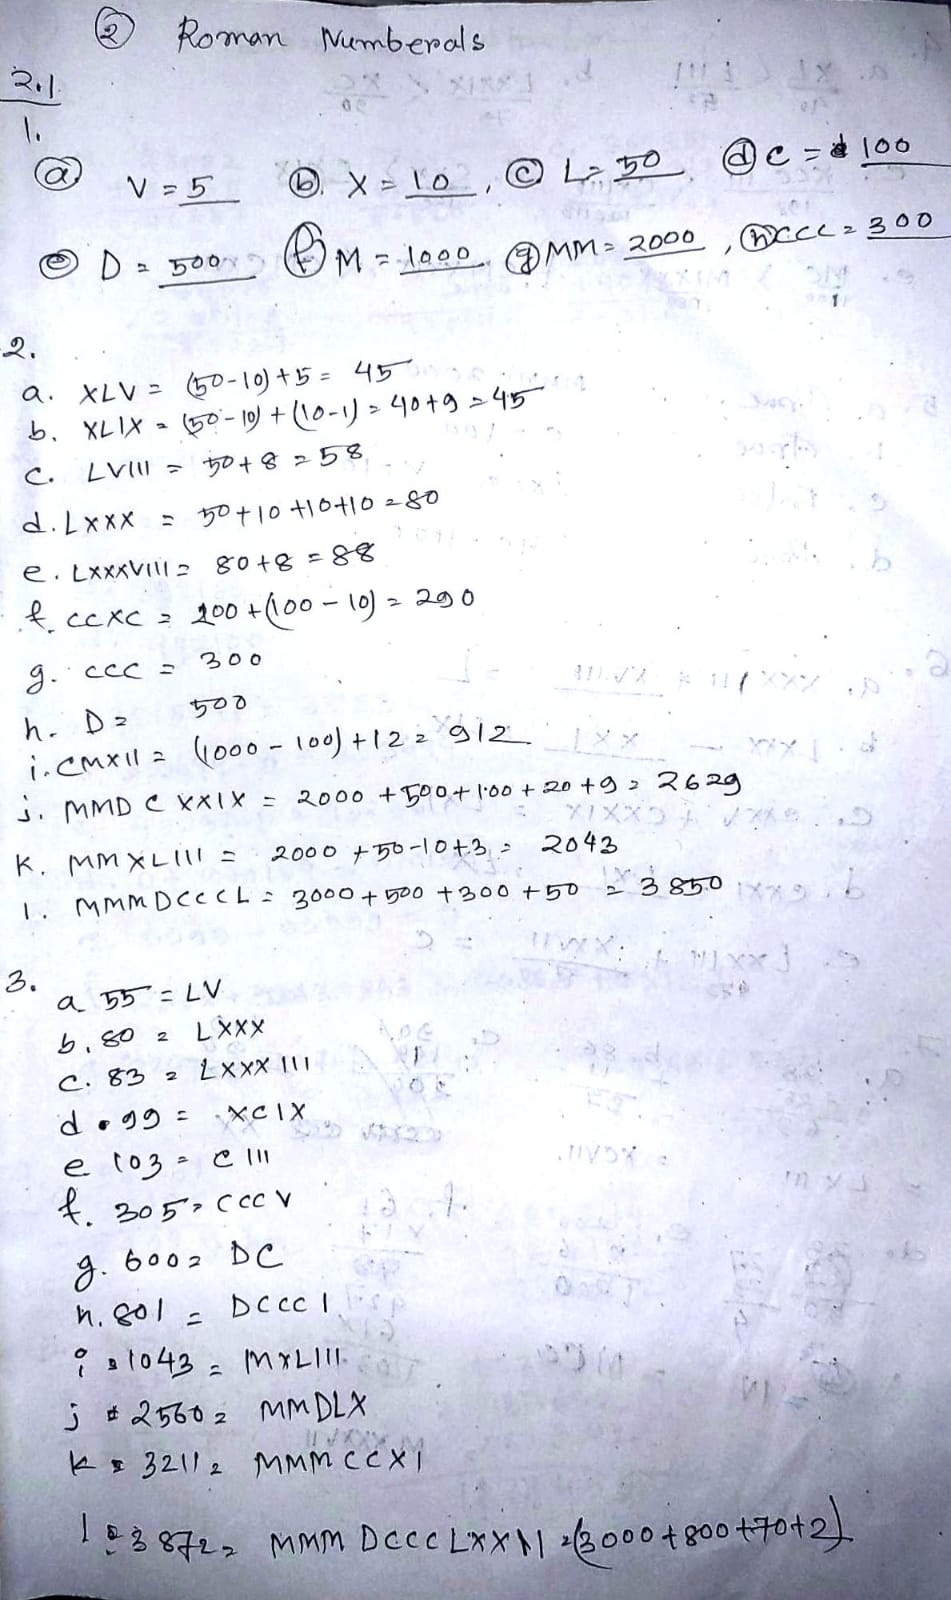 ② Roman Numberals
2.1
1.
ⓐ V = 5 ⓑ. X = 10, ⓒ L = 50 ⓓ C = 100
ⓔ D = 500 ⓕ M = 1000 ⓖ MM = 2000, ⓗ CCC = 300
2.
a. XLV = (50-10)+5 = 45
b. XLIX = (50-10) + (10-1) = 40+9 = 45
c. LVIII = 50+8 = 58
d. LXXX = 50+10+10+10 = 80
e. LXXXVIII = 80+8 = 88
f. CCXC = 200+(100-10) = 290
g. CCC = 300
h. D = 500
i. CMXII = (1000-100)+12 = 912
j. MMDCXXIX = 2000+500+100+20+9 = 2629
K. MMXLIII = 2000+50-10+3 = 2043
l. MMMDCCCL = 3000+500+300+50 = 3850
3.
a 55 = LV
b. 80 = LXXX
c. 83 = LXXXIII
d. 99 = XCIX
e 103 = CIII
f. 305 = CCCV
g. 600 = DC
h. 801 = DCCCI
i 1043 = MXLIII
j 2560 = MMDLX
k 3211 = MMMCCXI
l 3872 = MMMDCCCLXXII = (3000+800+70+2)